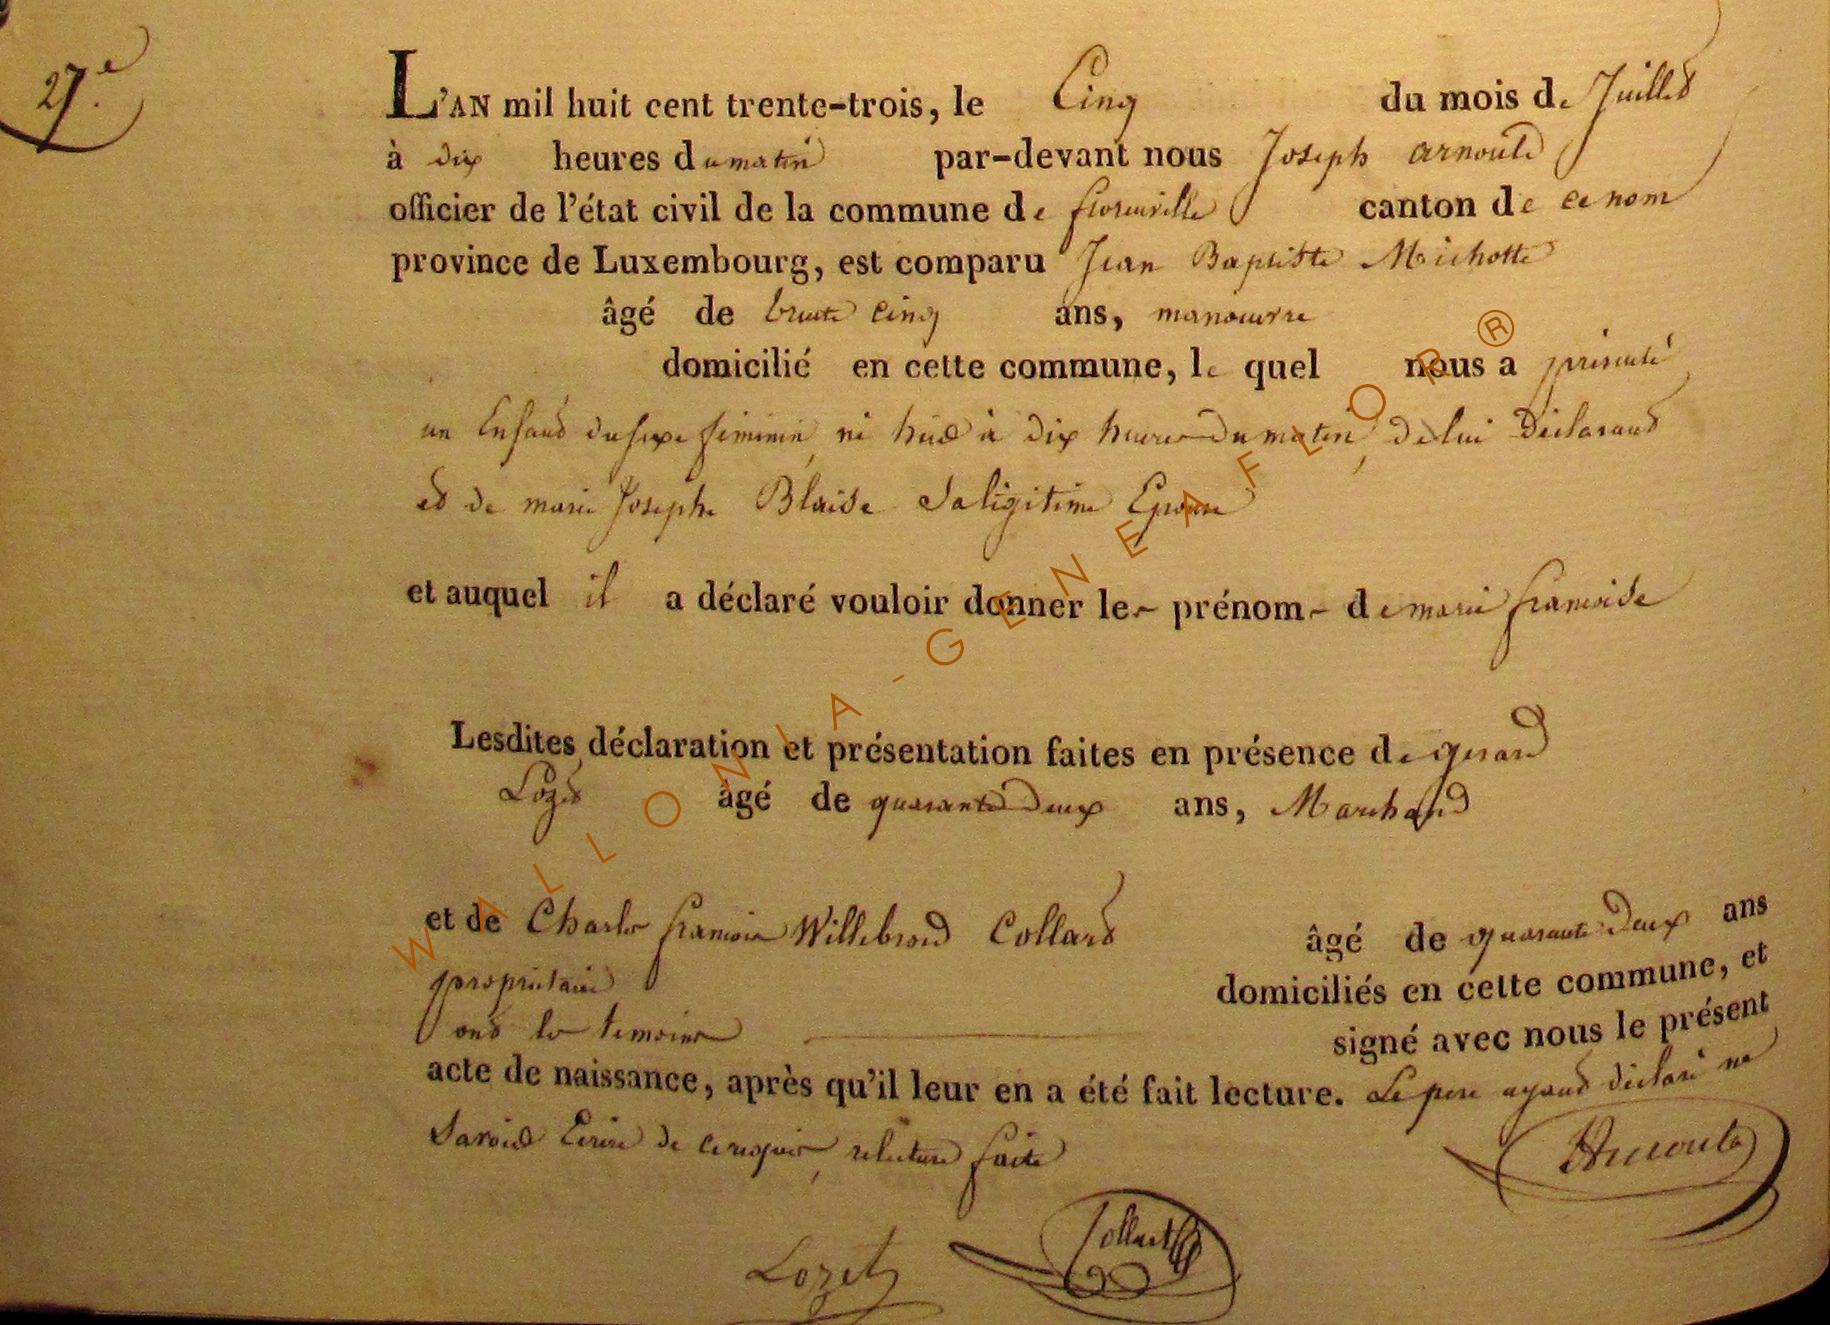 27.e
L'AN mil huit cent trente-trois, le Cinq du mois de Juillet
à dix heures du matin par-devant nous Joseph arnould
officier de l'état civil de la commune de florenville canton de ce nom
province de Luxembourg, est comparu Jean Baptiste Michotte
âgé de trente cinq ans, manoeuvre
domicilié en cette commune, le quel nous a présenté
un Enfant du sexe féminin, né hier à dix heures du matin, de lui Déclarant
et de marie Josephe Blaise Sa légitime Epouse
et auquel il a déclaré vouloir donner les prénoms de marie françoise
Lesdites déclaration et présentation faites en présence de gerard
Lozet âgé de quarante Deux ans, Marchand
et de Charles françois Willebrord Collard âgé de quarante Deux ans
propriétaire domiciliés en cette commune, et
ont les témoins signé avec nous le présent
acte de naissance, après qu'il leur en a été fait lecture. Le pere ayant déclaré ne
Savoir Ecrire de ce requis, relecture faite
Arnould
Lozet Collard
WALLONIA-GENEAFLOR®